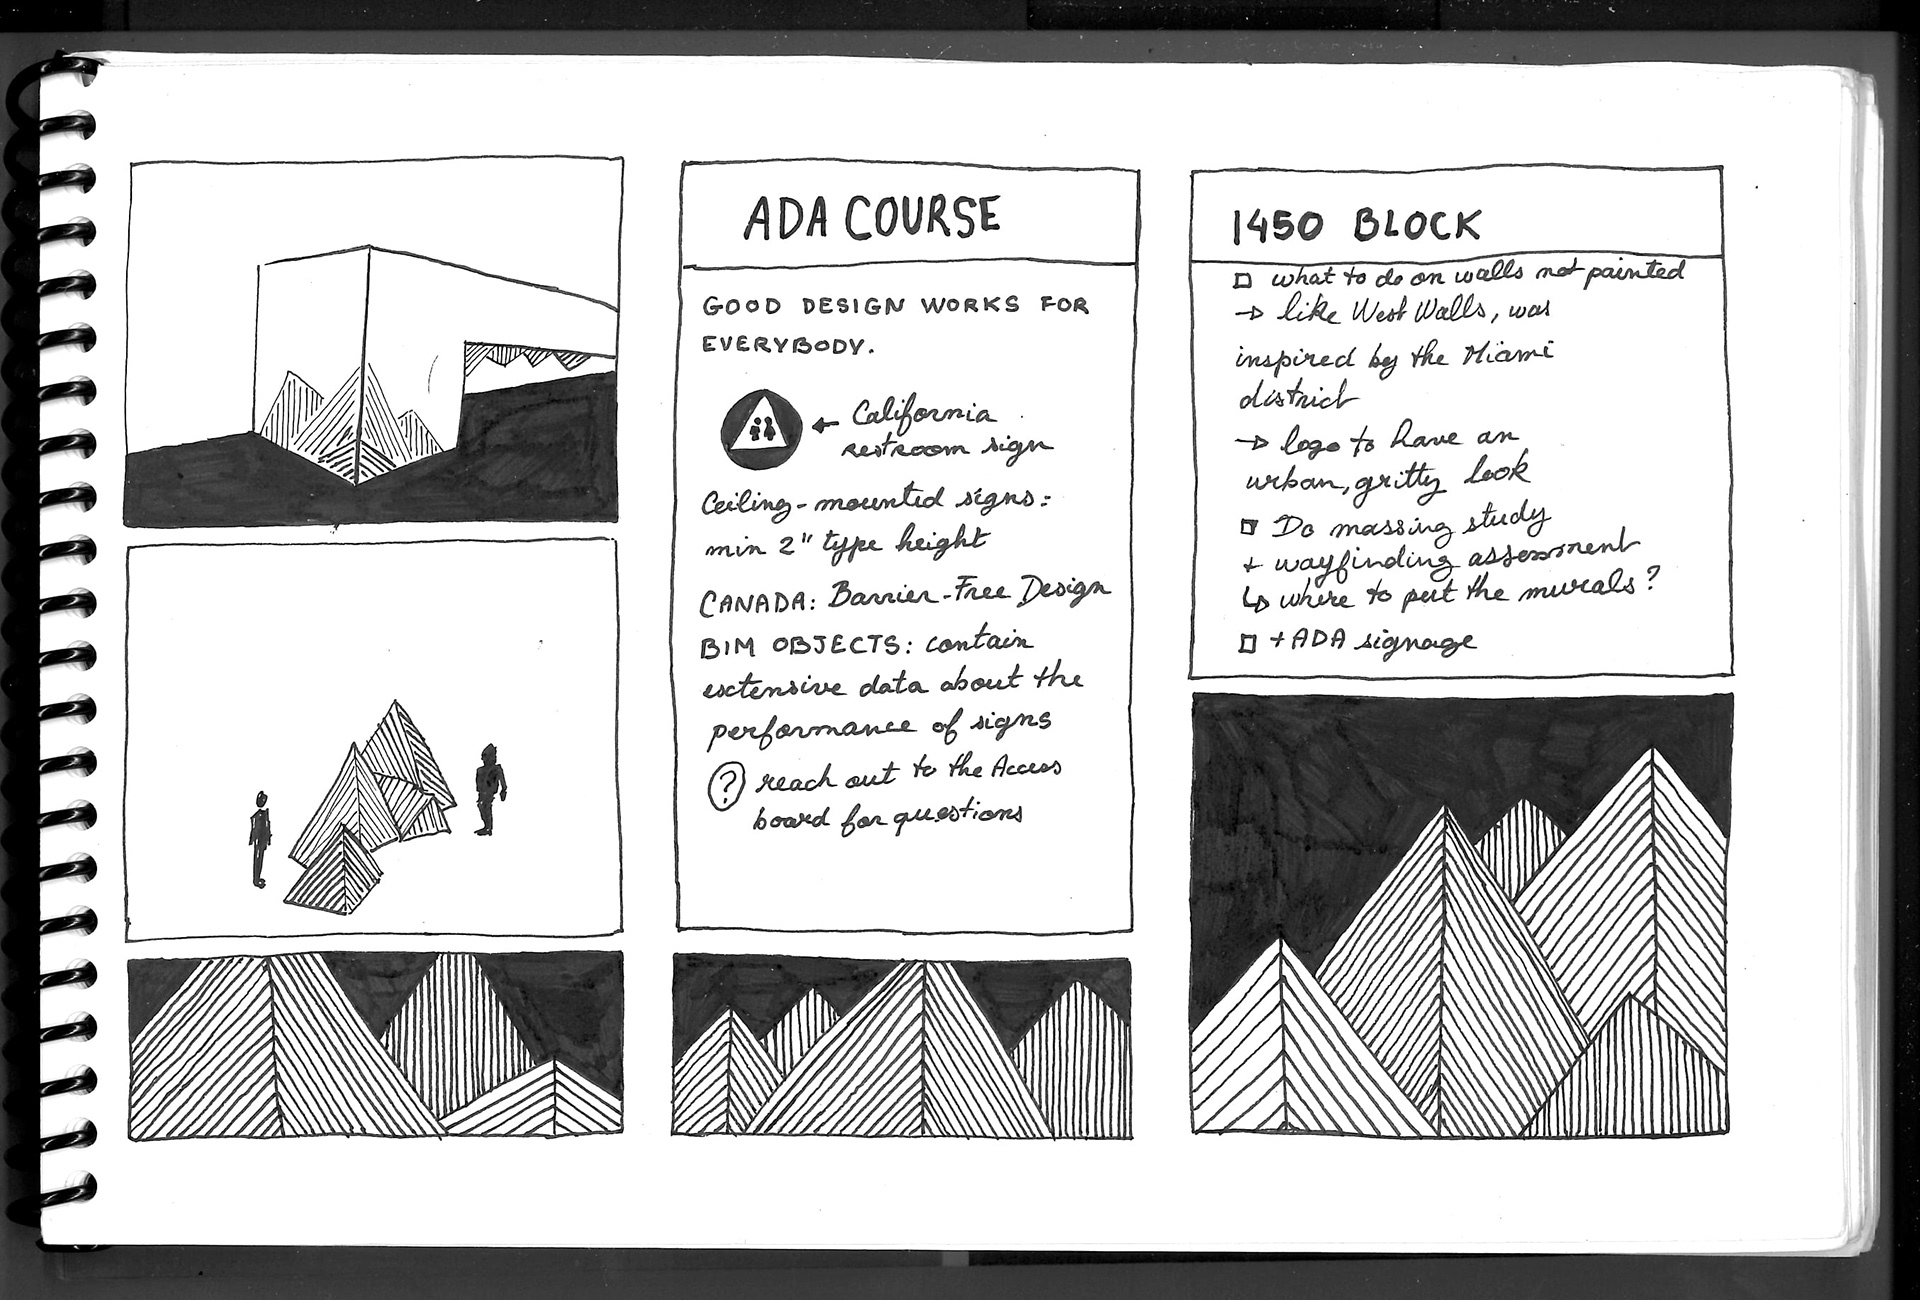 ADA COURSE
GOOD DESIGN WORKS FOR
EVERYBODY.
← California
restroom sign
Ceiling-mounted signs:
min 2" type height
CANADA: Barrier-Free Design
BIM OBJECTS: contain
extensive data about the
performance of signs
? reach out to the Access
board for questions
1450 BLOCK
□ what to do on walls not painted
→ like West Walls, was
inspired by the Miami
district
→ logo to have an
urban, gritty look
□ Do massing study
+ wayfinding assessment
↳ where to put the murals?
□ + ADA signage